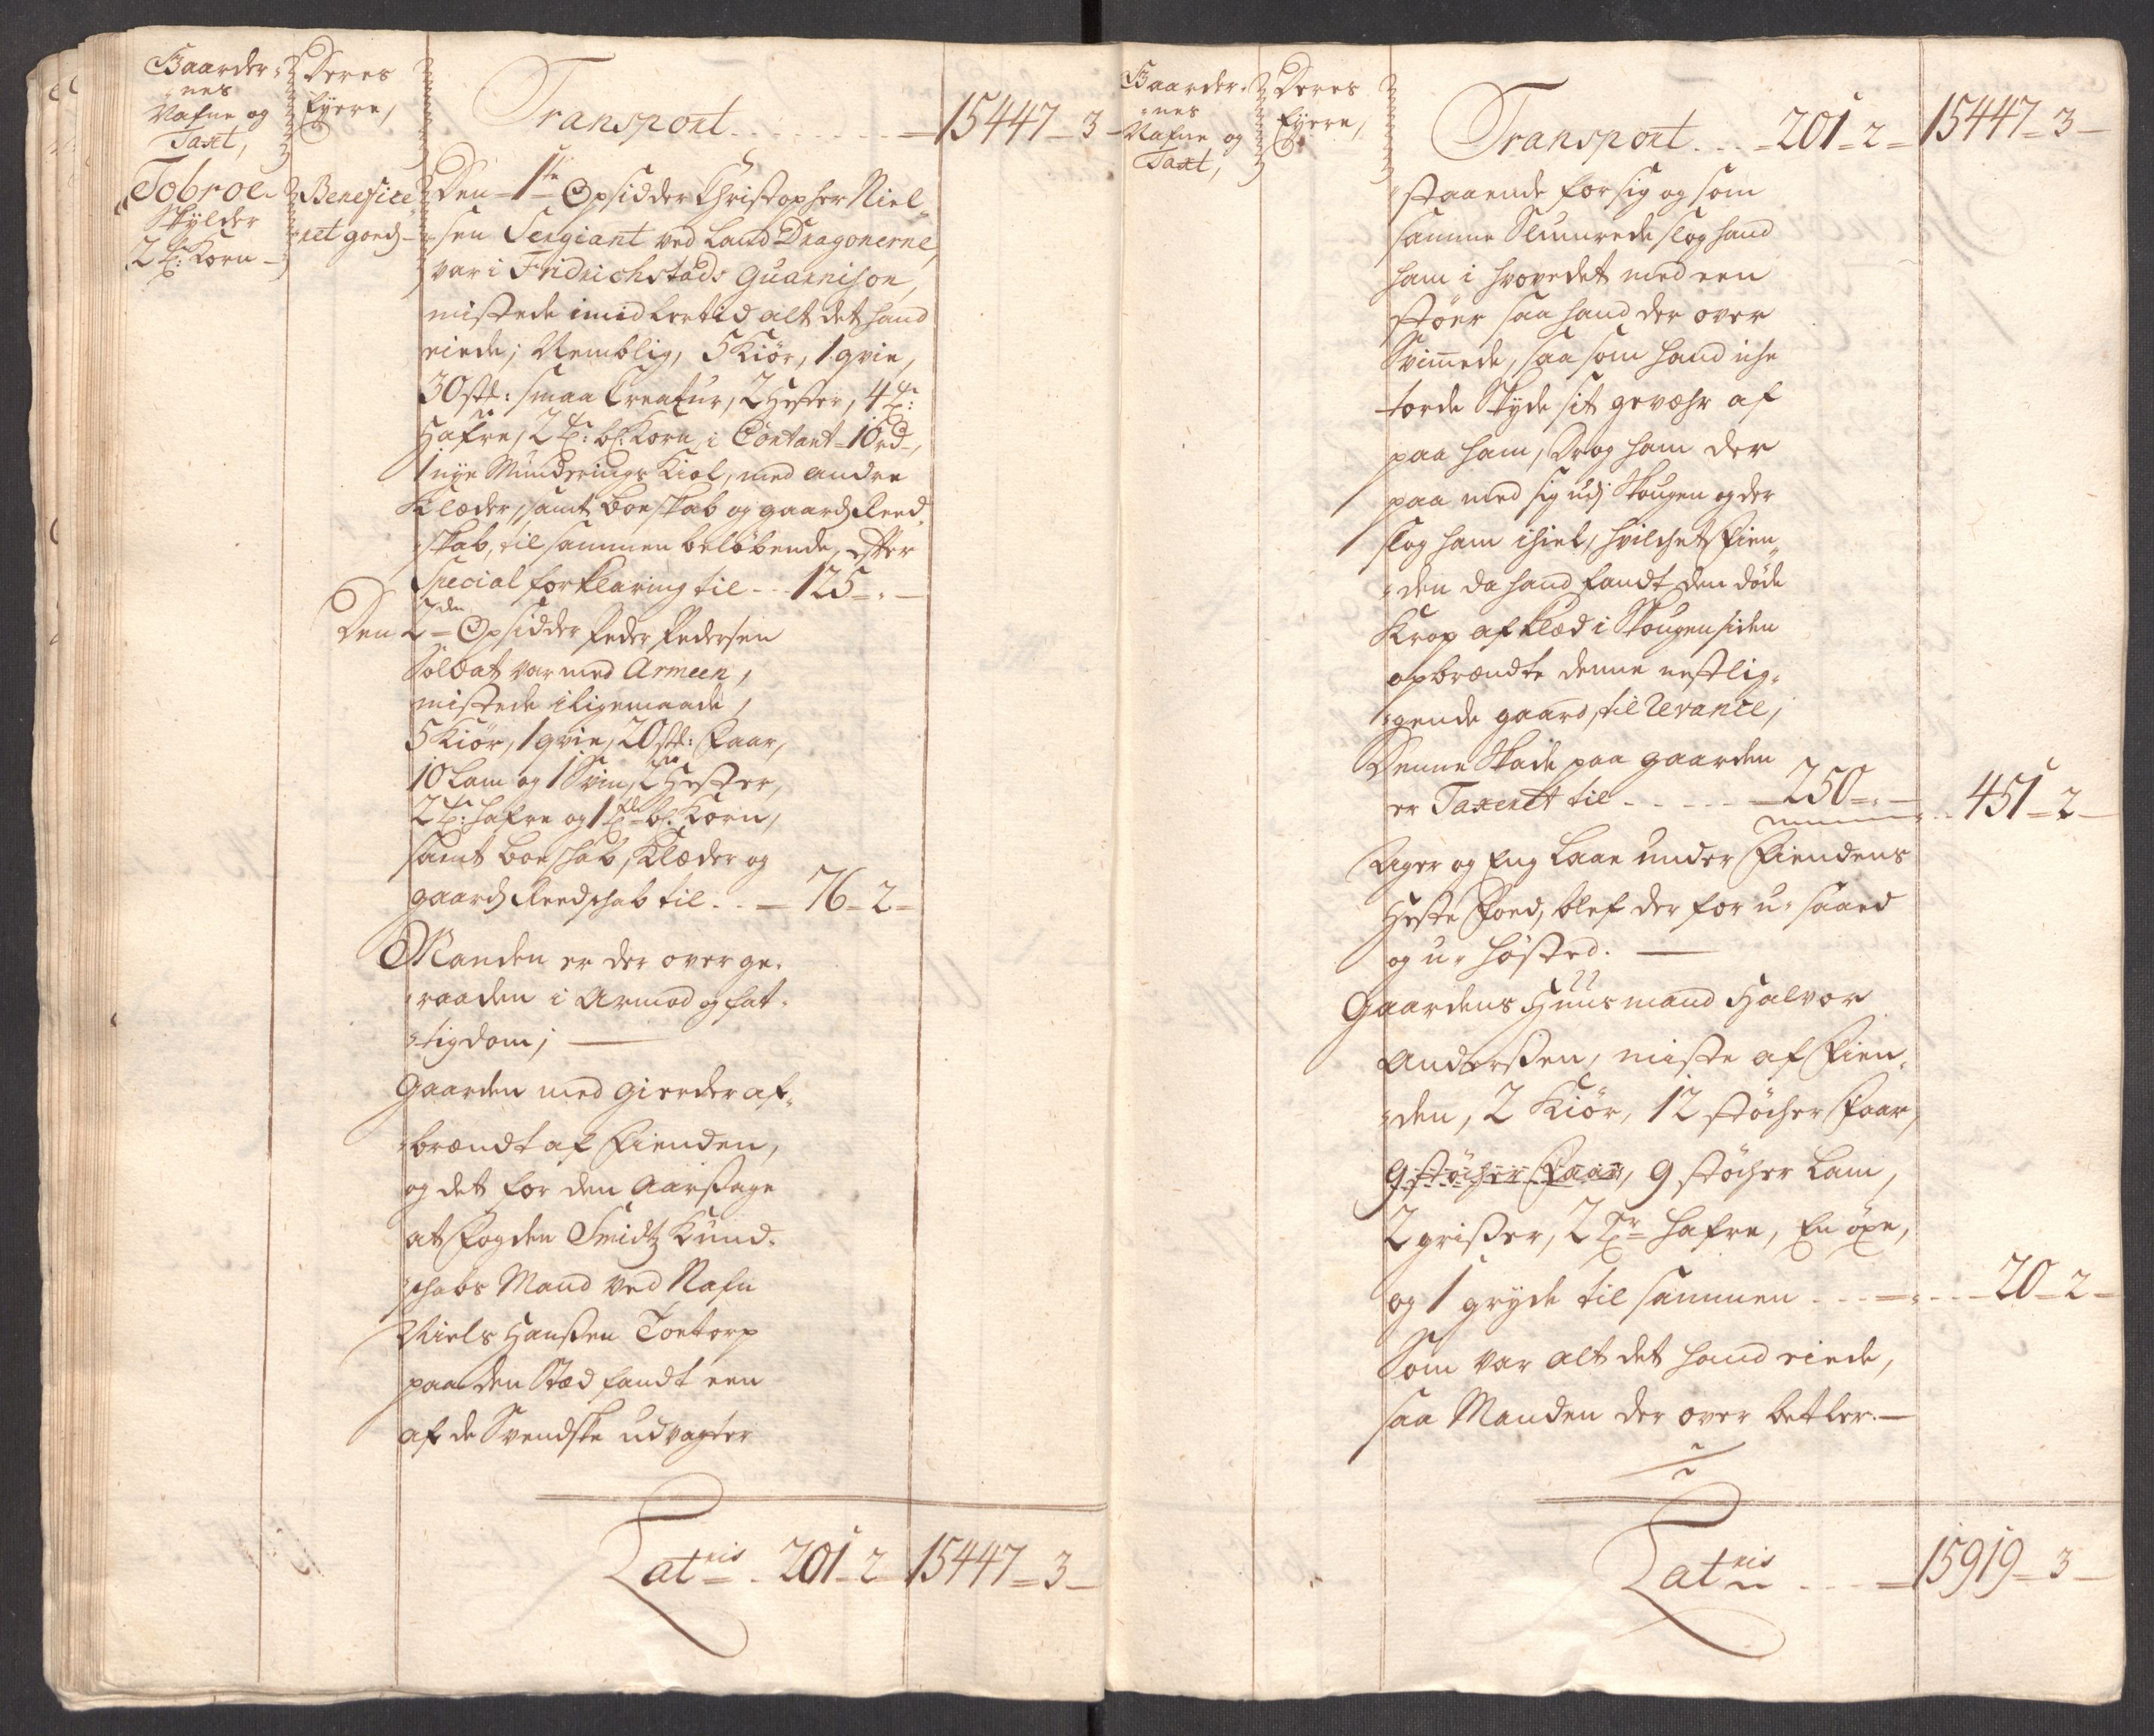 Gaarder-
nes
Nafne og
Taxt,
Deres
Eyere,
Transport - 15447 - 3 -
Tobroe-
Skylder
2 Tr: Korn -
Benefice
ret goeds -
Den 1te Opsidder Christopher Niel-
sen Sergiant ved Land Dragonerne,
var i Fridrichstads Guarnison,
mistede imidlertid alt det hand
eiede; Nemblig, 5 Kiör, 1 qvie,
30 stk: smaa Creatur, 2 Hester, 4 Tr:
Hafre, 2 Tr: bl: Korn, i Contant 10 rd,
1 nye Munderings Kiol, med andre
Klæder, samt boeskab og gaards Reed-
skab, til sammen beløbende, efter
Special forklaring til - 125 - -
Den 2den Opsidder Peder Pedersen
Soldat var med Armeen,
mistede iligemaade,
5 Kiör, 1 qvie, 20 stk: Faar,
10 Lam og 1 Sviin, 2 Hester,
2 Tr: Hafre og 1 Tr bl: Korn,
samt boeschab, Klæder og
gaards Reedschab til - 76 - 2 -
Manden er der over ge-
raaden i Armod og fat-
tigdom;
Gaarden med gierder af-
brændt af Fienden,
og det for den Aarsage
at Fogden Smidtz Kund-
schabs Mand ved Nafn
Niels Hanssen Tortorp
paa den Stæd fandt een
af de Svendske udvagter
Latris - 201 - 2 - 15447 - 3 -
Gaarder-
nes
Nafne og
Taxt,
Deres
Eyere,
Transport - 201 - 2 - 15447 - 3 -
staaende for sig og som
samme Slumrede slog hand
ham i hovedet med een
støer saa hand der over
Svimede, saa som hand iche
torde Skyde sit gevæhr af
paa ham, Drog ham der
paa med sig udj Skougen og der
slog ham ihiel, hvilchet Fien-
den da hand fandt den døde
Krop afklæd i Skougen siden
opbrændte denne nestlig-
gende gaard, til Revance,
Denne Skade paa gaarden
er Taxeret til - 250 - - 451 - 2 -
Ager og Eng laae under Fiendens
Heste Foed, blef der for u-saaed
og u-høsted.
Gaardens Huusmand Halvor
Anderssen, miste af Fien-
den, 2 Kiör, 12 støcher Faar,
9 støcher Faar, 9 støcher Lam,
2 grisser, 2 Tr Hafre, En öxe,
og 1 gryde til sammen - 20 - 2 -
Som var alt det hand eiede,
saa Manden der over betler.
Latris - 15919 - 3 -